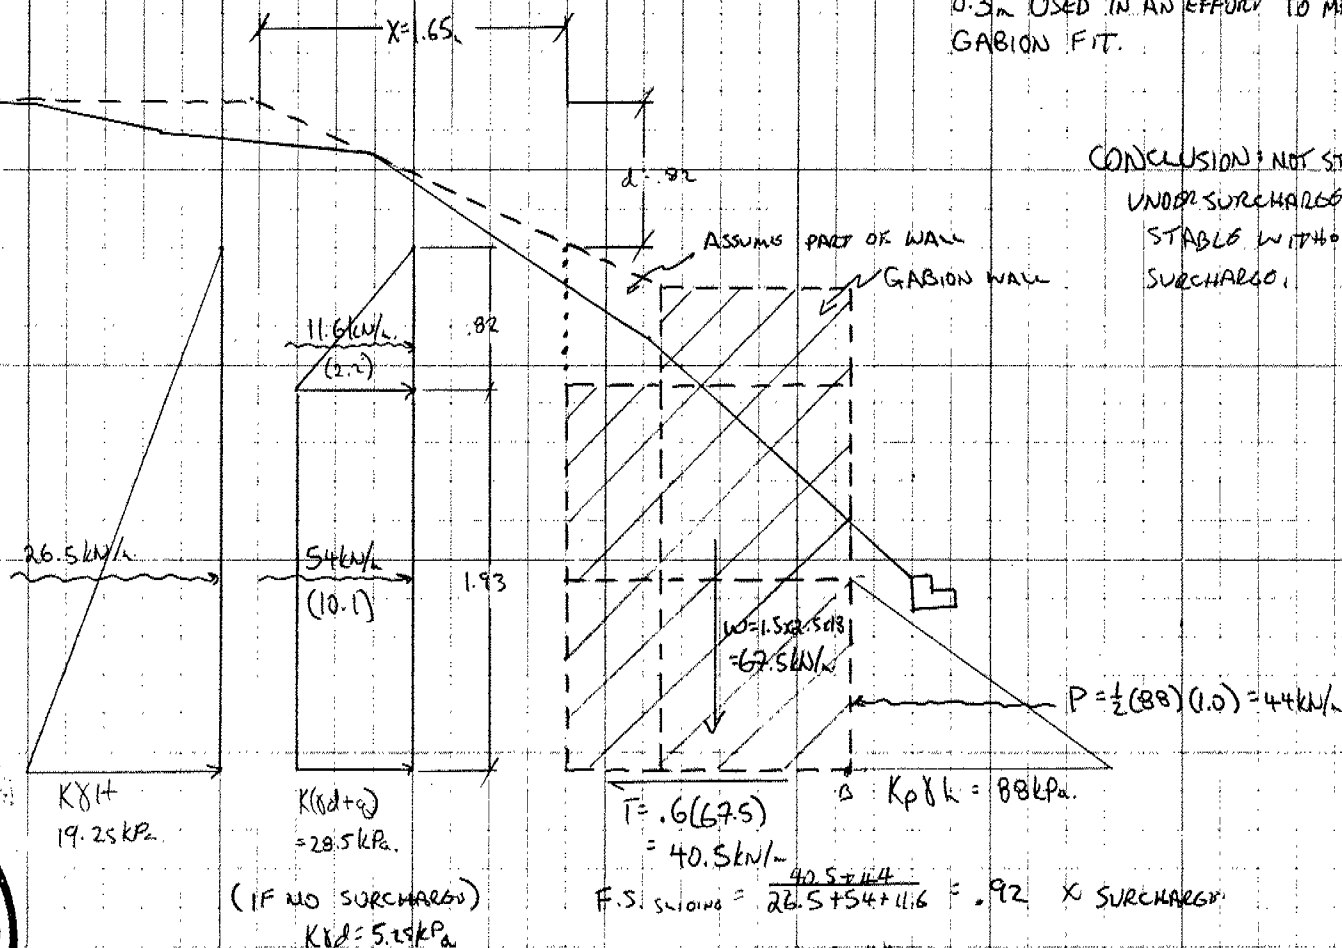 0.3m USED IN AN EFFORT TO
GABION FIT.
X=1.65m
CONCLUSION: NOT
UNDER SURCHARGE
STABLE
SURCHARGE.
d=.82
ASSUME PART OF WALL
GABION WALL
11.6kN/m
(2.2)
.82
26.5kN/m
54kN/m
(10.1)
1.93
W=1.5x2.5x18
=67.5kN/m
P=½(88)(1.0)=44kN/m
KγH
19.25kPa
K(γd+q)
=28.5kPa.
T=.6(67.5)
=40.5kN/m
B
Kpγh = 88kPa.
(IF NO SURCHARGE)
Kγd=5.25kPa
F.S. SLIDING = 40.5+44 / 26.5+54+11.6 = .92 X SURCHARGE.